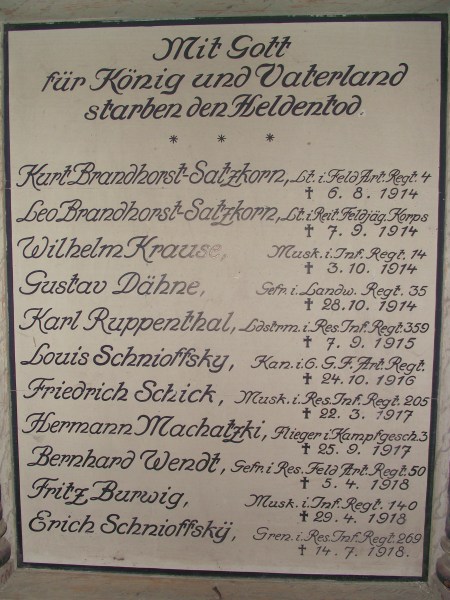 Mit Gott
für König und Vaterland
starben den Heldentod.
* * *
Kurt Brandhorst-Satzkorn, Lt. i. Feld Art. Regt. 4
† 6. 8. 1914
Leo Brandhorst-Satzkorn, Lt. i. Reit. Feldjäg. Korps
† 7. 9. 1914
Wilhelm Krause, Musk. i. Inf. Regt. 14
† 3. 10. 1914
Gustav Dähne, Gefr. i. Landw. Regt. 35
† 28. 10. 1914
Karl Ruppenthal, Ldstrm. i. Res. Inf. Regt. 359
† 7. 9. 1915
Louis Schnioffsky, Kan. i. 6. G. F. Art. Regt.
† 24. 10. 1916
Friedrich Schick, Musk. i. Res. Inf. Regt. 205
† 22. 3. 1917
Hermann Machatzki, Flieger i. Kampfgesch. 3
† 25. 9. 1917
Bernhard Wendt, Gefr. i. Res. Feld Art. Regt. 50
† 5. 4. 1918
Fritz Burwig, Musk. i. Inf. Regt. 140
† 29. 4. 1918
Erich Schnioffskÿ, Gren. i. Res. Inf. Regt. 269
† 14. 7. 1918.